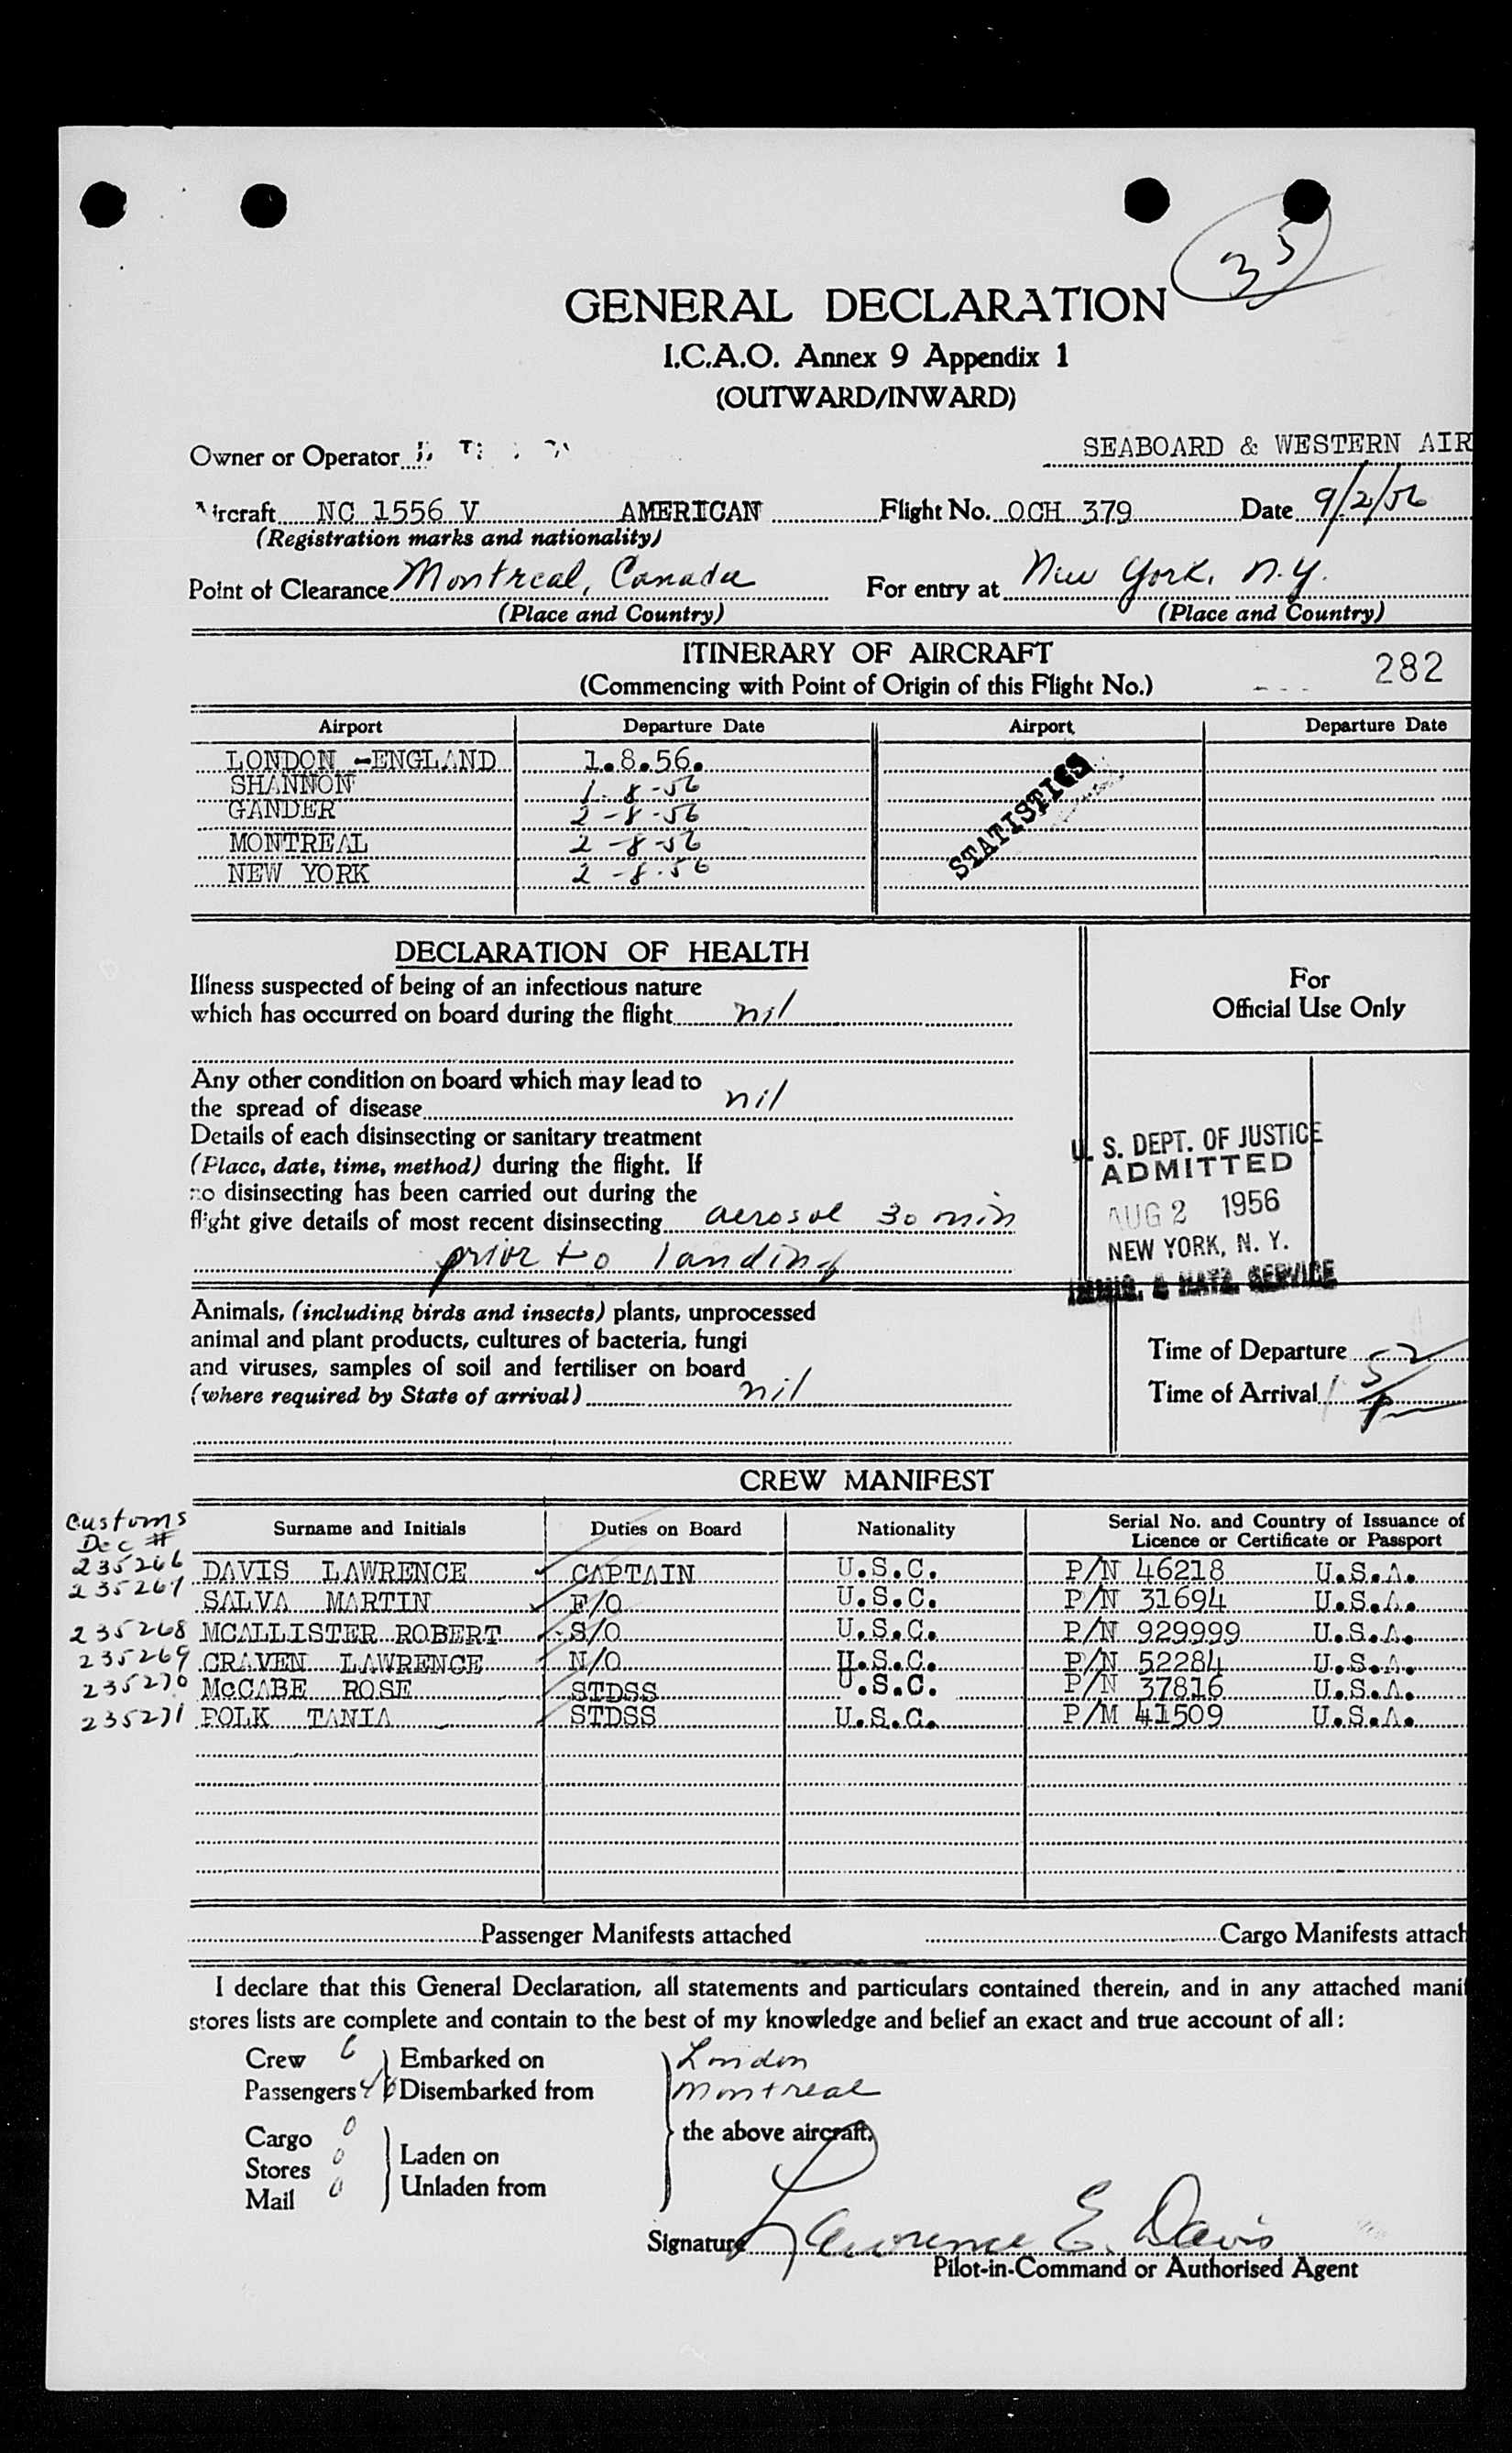 35
GENERAL DECLARATION
I.C.A.O. Annex 9 Appendix 1
(OUTWARD/INWARD)
Owner or Operator SEABOARD & WESTERN AIR
Aircraft NC 1556 V AMERICAN Flight No. OCH 379 Date 9/2/56
(Registration marks and nationality)
Point of Clearance Montreal, Canada For entry at New York, N.Y.
(Place and Country) (Place and Country)
ITINERARY OF AIRCRAFT
282
(Commencing with Point of Origin of this Flight No.)
Airport Departure Date Airport Departure Date
LONDON -ENGLAND 1.8.56.
SHANNON 1-8-56
GANDER 2-8-56
MONTREAL 2-8-56
NEW YORK 2-8-56
STATISTICS
DECLARATION OF HEALTH
Illness suspected of being of an infectious nature
which has occurred on board during the flight nil
Any other condition on board which may lead to
the spread of disease nil
Details of each disinsecting or sanitary treatment
(Place, date, time, method) during the flight. If
no disinsecting has been carried out during the
flight give details of most recent disinsecting aerosol 30 min
prior to landing
For
Official Use Only
U. S. DEPT. OF JUSTICE
ADMITTED
AUG 2 1956
NEW YORK, N. Y.
IMMIG. & NATZ. SERVICE
Animals, (including birds and insects) plants, unprocessed
animal and plant products, cultures of bacteria, fungi
and viruses, samples of soil and fertiliser on board
(where required by State of arrival) nil
Time of Departure
Time of Arrival
CREW MANIFEST
Customs
Dec #
Surname and Initials Duties on Board Nationality Serial No. and Country of Issuance of
Licence or Certificate or Passport
235266 DAVIS LAWRENCE CAPTAIN U.S.C. P/N 46218 U.S.A.
235267 SALVA MARTIN F/O U.S.C. P/N 31694 U.S.A.
235268 MCALLISTER ROBERT S/O U.S.C. P/N 929999 U.S.A.
235269 CRAVEN LAWRENCE N/O U.S.C. P/N 52284 U.S.A.
235270 McCABE ROSE STDSS U.S.C. P/N 37816 U.S.A.
235271 POLK TANIA STDSS U.S.C. P/M 41509 U.S.A.
Passenger Manifests attached Cargo Manifests attach
I declare that this General Declaration, all statements and particulars contained therein, and in any attached mani
stores lists are complete and contain to the best of my knowledge and belief an exact and true account of all:
Crew 6 Embarked on London
Passengers Disembarked from Montreal
the above aircraft.
Cargo 0
Stores 0 Laden on
Mail 0 Unladen from
Signature Lawrence E. Davis
Pilot-in-Command or Authorised Agent